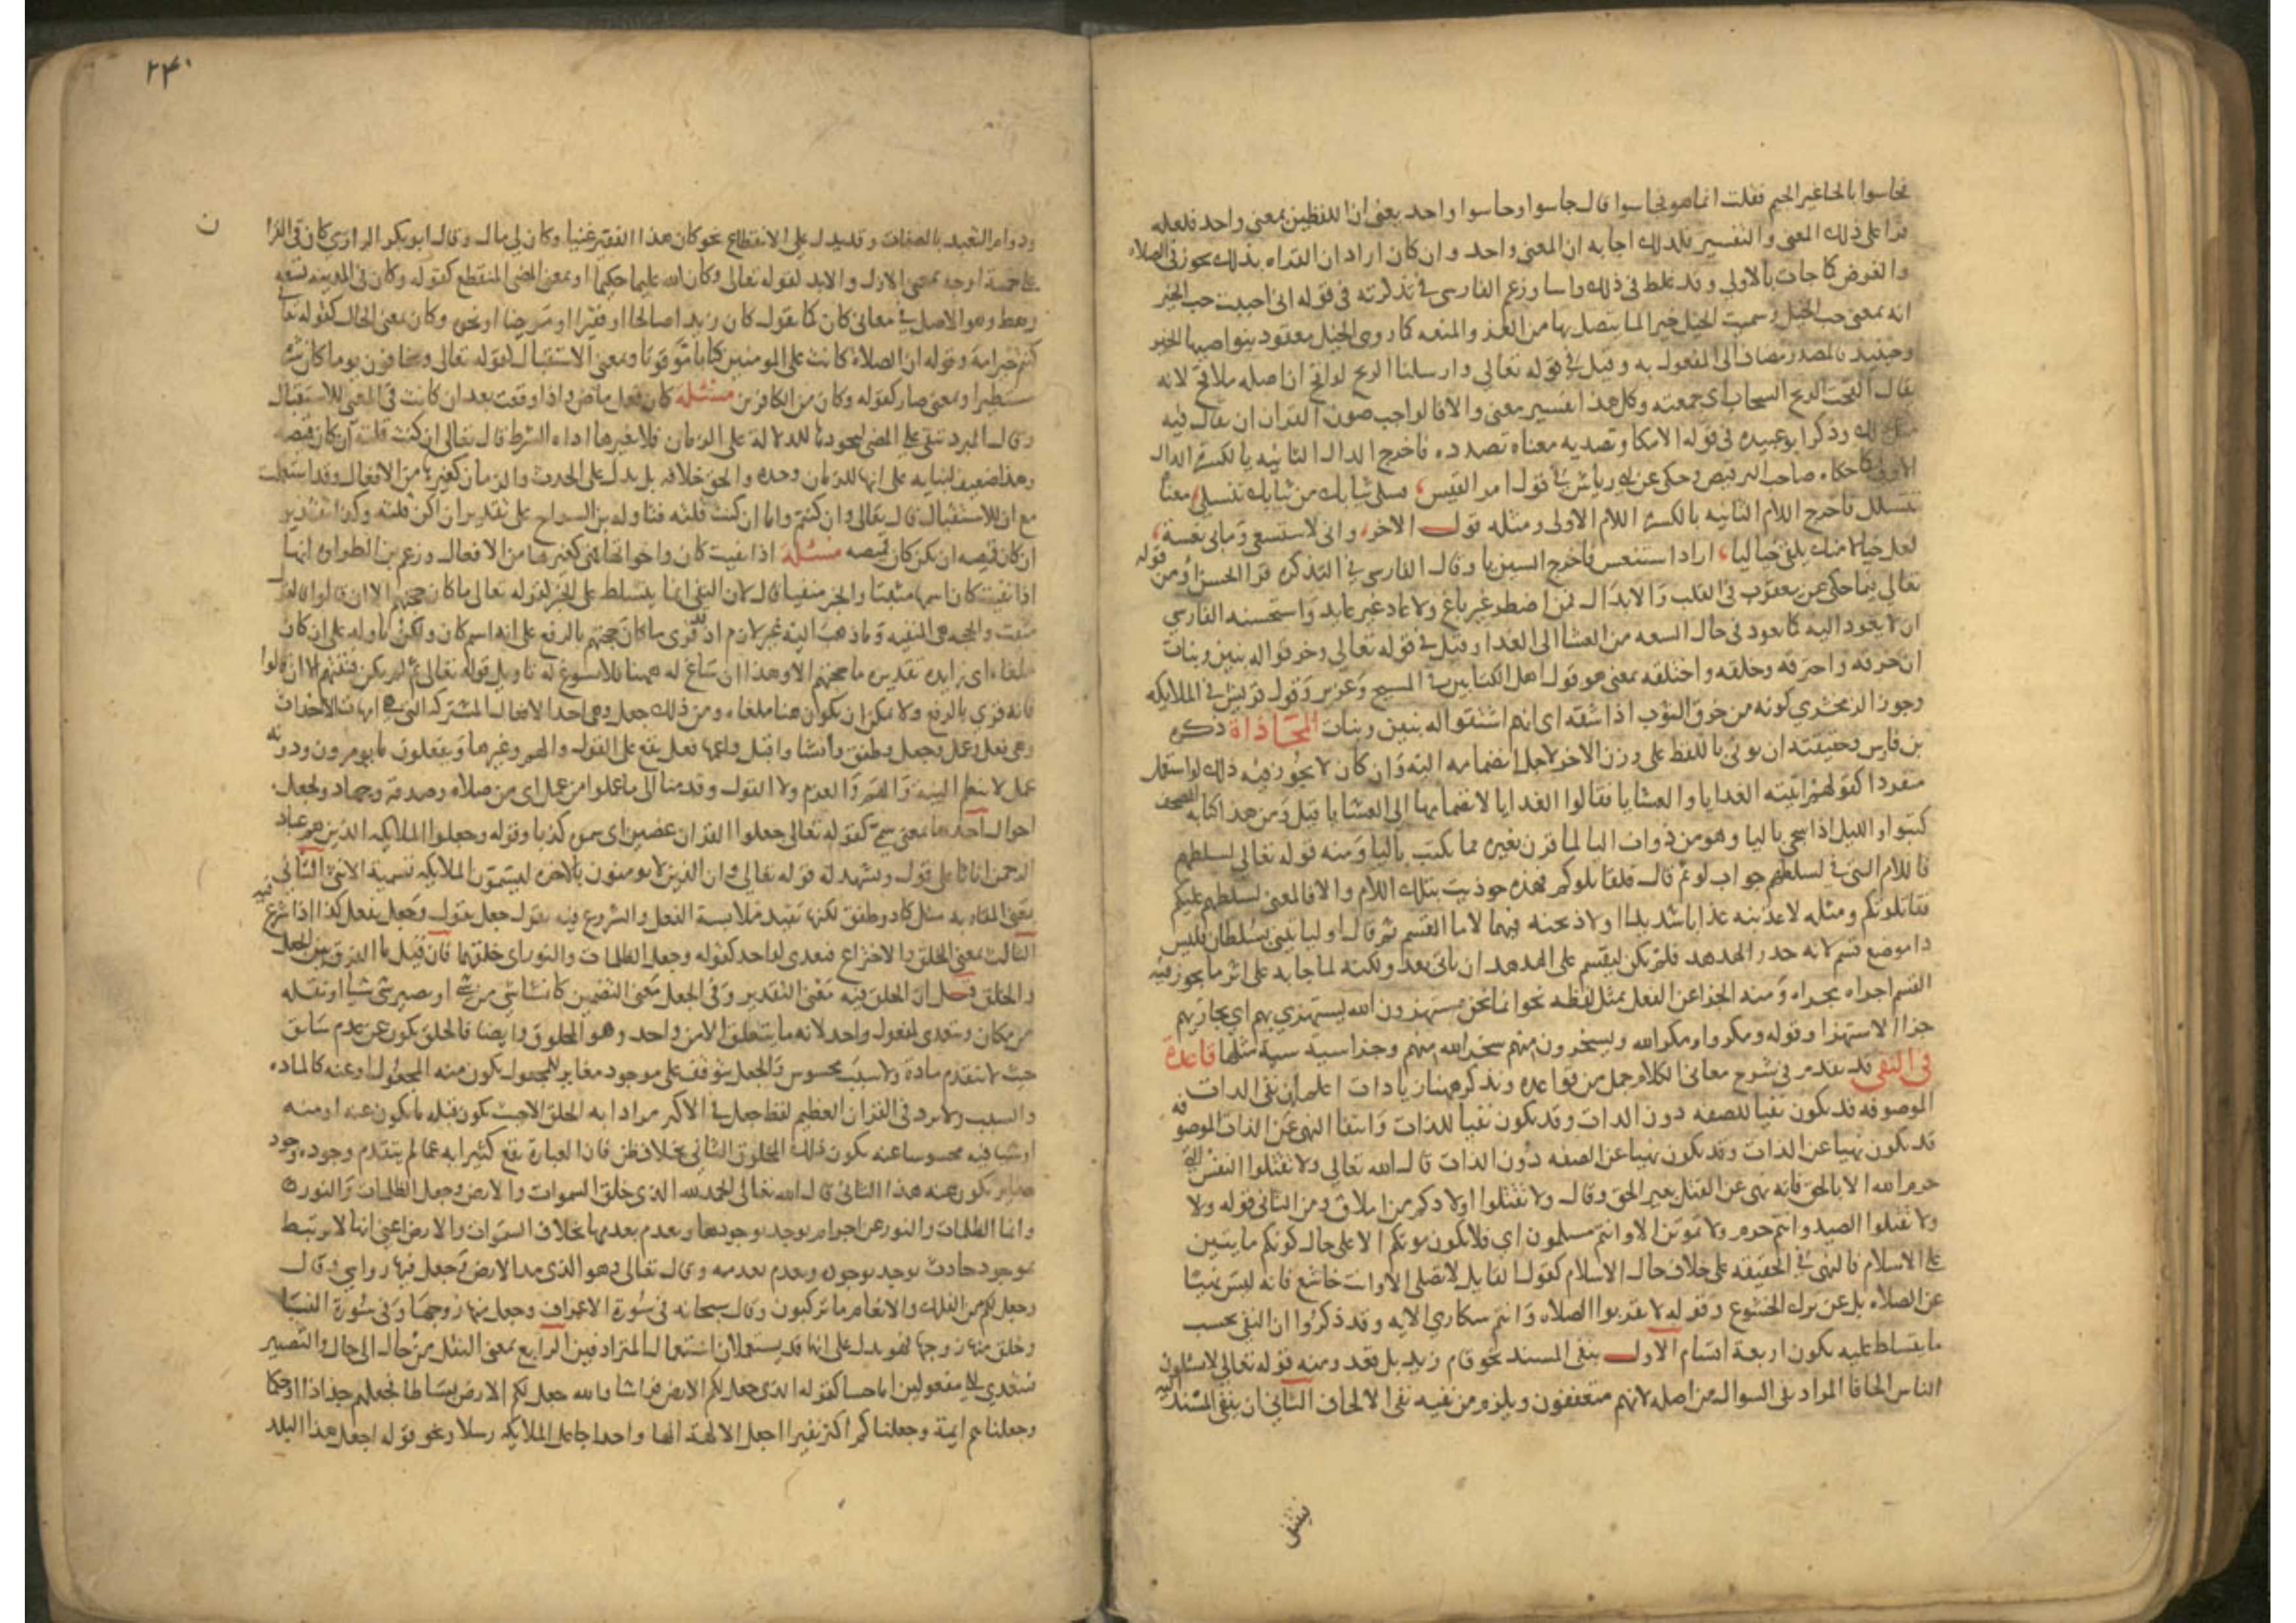 فجاسوا بالحا غير الجيم فقلت انما هو فجاسوا قال جاسوا وحاسوا واحد يعنى ان اللفظين بمعنى واحد فلعله
قرا على ذلك المعنى والتفسير فلذلك اجابه ان المعنى واحد وان كان اراد ان القراه بذلك تجوز فى الصلاه
والفرض كما جات بالاولى وقد غلط فى ذلك واسا وزعم الفارسى فى تذكرته فى قوله انى احببت حب الخير
انه بمعنى حب الخيل وسميت الخيل خيرا لما يتصل بها من العز والمنعه كما روى الخيل معقود بنواصيها الخير
وحينيد فالمصدر مضاف الى المفعول به وقيل فى قوله تعالى وارسلنا الريح لواقح ان اصله ملاقح لانه
يقال القحت الريح السحاب اى جمعته وكل هذا تفسير معنى والا فالواجب صون القران ان يقال فيه
مثل ذلك وذكر ابو عبيده فى قوله الا مكا وتصديه معناه تصدده فاخرج الدال الثانيه يا لكسرة الدال
الاولى كما حكاه صاحب الترقيص وحكى عن ابى رياش فى قول امر القيس فسلى ثيابك من ثيابك تنسلى معناه
تنسلل فاخرج اللام الثانيه يا لكسرة اللام الاولى ومثله قول الاخر وانى لاستنعى وما بى نعسة
لعل خيالا منك يلقى خياليا اراد استنعس فاخرج السين يا وقال الفارسى فى التذكره قرا الحسن او من قوله
تعالى فيما حكى عن يعقوب فى القلب والابدال فمن اضطر غير باغ ولا عاد غير عايد واستحسنه الفارسى
ان لا يعود اليه كما يعود فى حال السعه من العشا الى الغدا وقيل فى قوله تعالى وخرقوا له بنين وبنات
ان خرقه واخترقه وخلقه واختلقه بمعنى هو قول اهل الكتابين فى المسيح وعزير وقول قريش فى الملايكه
وجوز الزمخشرى كونه من خرق الثوب اذا شقه اى انهم اشتقوا له بنين وبنات المحاذاة ذكره
بن فارس وحقيقته ان يوتى باللفظ على وزن الاخر لاجل انضمامه اليه وان كان لا يجوز فيه ذلك لو استعمل
منفردا كقولهم اتيته الغدايا والعشايا فقالوا الغدايا لانضمامها الى العشايا قيل ومن هذا كتابه المصحف
كتبوا والليل اذا سجى باليا وهو من ذوات الياء لما قرن بغيره مما يكتب باليا ومنه قوله تعالى لسلطهم
فاللام التى فى لسلطهم جواب لو ثم قال فلقاتلوكم فهذه حوذيت بتلك اللام والا فالمعنى لسلطهم عليكم
فقاتلوكم ومثله لاعذبنه عذابا شديدا او لاذبحنه فهما لاما القسم ثم قال او ليا تينى بسلطان فليس
ذا موضع قسم لانه عذر الهدهد فلم يكن ليقسم على الهدهد ان ياتى بعذر ولكنه لما جا به على اثر ما يجوز فيه
القسم اجراه مجراه ومنه الجزا عن الفعل بمثل لفظه نحو انما نحن مستهزون الله يستهزى بهم اى يجازيهم
جزا الاستهزا وقوله ومكروا ومكر الله ويسخرون منهم سخر الله منهم وجزا سيية سيية مثلها قاعدة
فى النفى قد تقدم فى شرح معانى الكلام جمل من قواعده ونذكر ههنا زيادات اعلم ان نفى الذات
الموصوفه قد يكون نفيا للصفه دون الذات وقد يكون نفيا للذات وانتفا النهى عن الذات الموصوفه
قد يكون نهيا عن الذات وقد يكون نهيا عن الصفه دون الذات قال الله تعالى ولا تقتلوا النفس التى
حرم الله الا بالحق فانه نهى عن القتل بغير الحق وقال ولا تقتلوا اولادكم من املاق ومن الثانى قوله ولا
ولا تقتلوا الصيد وانتم حرم ولا تموتن الا وانتم مسلمون اى فلا يكون موتكم الا على حال كونكم مايتين
على الاسلام فالنهى فى الحقيقه على خلاف حال الاسلام كقول القايل لا تصلى الا وانت خاشع فانه ليس نهيا
عن الصلاه بل عن ترك الخشوع وقوله لا تقربوا الصلاه وانتم سكارى الايه وقد ذكروا ان النفى بحسب
ما يتسلط عليه يكون اربعة اقسام الاول بنفى المسند نحو قام زيد بل قعد ومنه قوله تعالى لا يسئلون
الناس الحافا المراد نفى السوال من اصله لانهم متعففون ويلزم من نفيه نفى الالحاف الثانى ان ينفى المسند اليه
ينتفى
٢٤٠
ن
ودوام التعبد بالصفات وقد يدل على الانقطاع نحو كان هذا الفقير غنيا وكان لى مال وقال ابو بكر الرازى كان فى القرا
على خمسة اوجه بمعنى الازل والابد لقوله تعالى وكان الله عليما حكيما او بمعنى المضى المنقطع كقوله وكان فى المدينه تسعه
رهط وهو الاصل فى معانى كان كما تقول كان زيد صالحا او فقيرا او مريضا او نحوه وكان بمعنى الحال كقوله تعا
كنتم خير امة وقوله ان الصلاة كانت على المومنين كتابا موقوتا وبمعنى الاستقبال لقوله تعالى ويخافون يوما كان شره
مستطيرا وبمعنى صار كقوله وكان من الكافرين مسئلة كان فعل ماض واذا وقعت بعد ان كانت فى المعنى للاستقبال
وقال المبرد تبقى على المضى لتجردها للدلالة على الزمان فلا يغيرها اداه الشرط قال تعالى ان كنت قلته ان كان قميصه
وهذا ضعيف لبنايه على انها للزمان وحده والحق خلافه بل يدل على الحدث والزمان كغيرها من الافعال وقد استعملت
مع ان للاستقبال قال تعالى وان كنتم واما ان كنت قلته فتاوله بن السراج على تقدير ان اكن قلته وكذا تقدير
ان كان قميصه ان يكن كان قميصه مسئلة اذا نفيت كان واخواتها فهى كغيرها من الافعال وزعم بن الطراوه انها
اذا نفيت كان اسمها مثبتا والخبر منفيا قال لان النفى انما يتسلط على الخبر لقوله تعالى ما كان حجتهم الا ان قالوا فالقول
مثبت والحجه هى المنفيه وما ذهب اليه غير لازم اذ قد قرى ما كان حجتهم بالرفع على انه اسم كان ولكن تاوله على ان كان
ملغاه اى زايده تقديره ما حجتهم الا وهذا ان ساغ له ههنا فلا يسوغ له تاويل قوله تعالى ثم لم يكن فتنتهم الا ان قالوا
فانه قرى بالرفع ولا يمكن ان يكون هنا ملغاه ومن ذلك جعل وهى احد الافعال المشتركه التى هى امهات الاحداث
وهى فعل وعمل وجعل وطفق وانشا واقبل واعمها فعل يقع على القول والهم وغيرهما ويفعلون ما يومرون ودونه
عمل لا يعم النية والهم والعزم ولا القول وقدمنا الى ما عملوا من عمل اى من صلاه وصدقه وجهاد ولجعل
احوال احدها بمعنى سمى كقوله تعالى جعلوا القران عضين اى سموه كذبا وقوله وجعلوا الملايكه الذين هم عباد
الرحمن اناثا على قول ويشهد له قوله تعالى وان الذين لا يومنون بالاخره ليسمون الملايكه تسمية الانثى الثانى
بمعنى المقاربه مثل كاد وطفق لكنها تفيد ملابسة الفعل والشروع فيه تقول جعل يقول وجعل يفعل كذا اذا شرع فيه
الثالث بمعنى الخلق والاختراع فيعدى لواحد كقوله وجعل الظلمات والنور اى خلقهما فان قيل ما الفرق بين الجعل
والخلق قيل ان الخلق فيه معنى التقدير وفى الجعل معنى التضمين كانشا شى من شى او تصيير شى شيا او نقله
من مكان ويتعدى لمفعول واحد لانه ما يتعلق الا من واحد وهو المخلوق وايضا فالخلق يكون عن عدم سابق
حيث لا يتقدم مادة ولا سبب محسوس والجعل يتوقف على موجود مغاير للمجعول يكون منه المجعول او عنه كالماده
والسبب ولا يرد فى القران العظيم لفظ جعل فى الاكثر مرادا به الخلق الا حيث يكون قبله ما يكون عنه او منه
او شيا فيه محسوسا عنه يكون ذلك المخلوق الثانى بخلاف خلق فان العبارة تقع كثيرا به عما لم يتقدم وجوده وجود
مغاير يكون عنه هذا الثانى قال الله تعالى الحمد لله الذى خلق السموات والارض وجعل الظلمات والنور
وانما الظلمات والنور عن اجرام يوجد بوجودها ويعدم بعدمها بخلاف السموات والارض اعنى انها لا يرتبط
بموجود حادث يوجد بوجوده ويعدم بعدمه وقال تعالى وهو الذى مد الارض وجعل فيها رواسى وقال
وجعل لكم من الفلك والانعام ما تركبون وقال سبحانه فى سورة الاعراف وجعل منها زوجها وفى سورة النسا
وخلق منها زوجها فهو يدل على انهما قد يستعملان استعمال المترادفين الرابع بمعنى النقل من حال الى حال والتصيير
فتتعدى الى مفعولين اما حسا كقوله الذى جعل لكم الارض فراشا والله جعل لكم الارض بساطا فجعلهم جذاذا او حكما
وجعلناهم ايمة وجعلناكم اكثر نفيرا اجعل الالهة الها واحدا جاعل الملايكه رسلا ونحو قوله اجعل هذا البلد